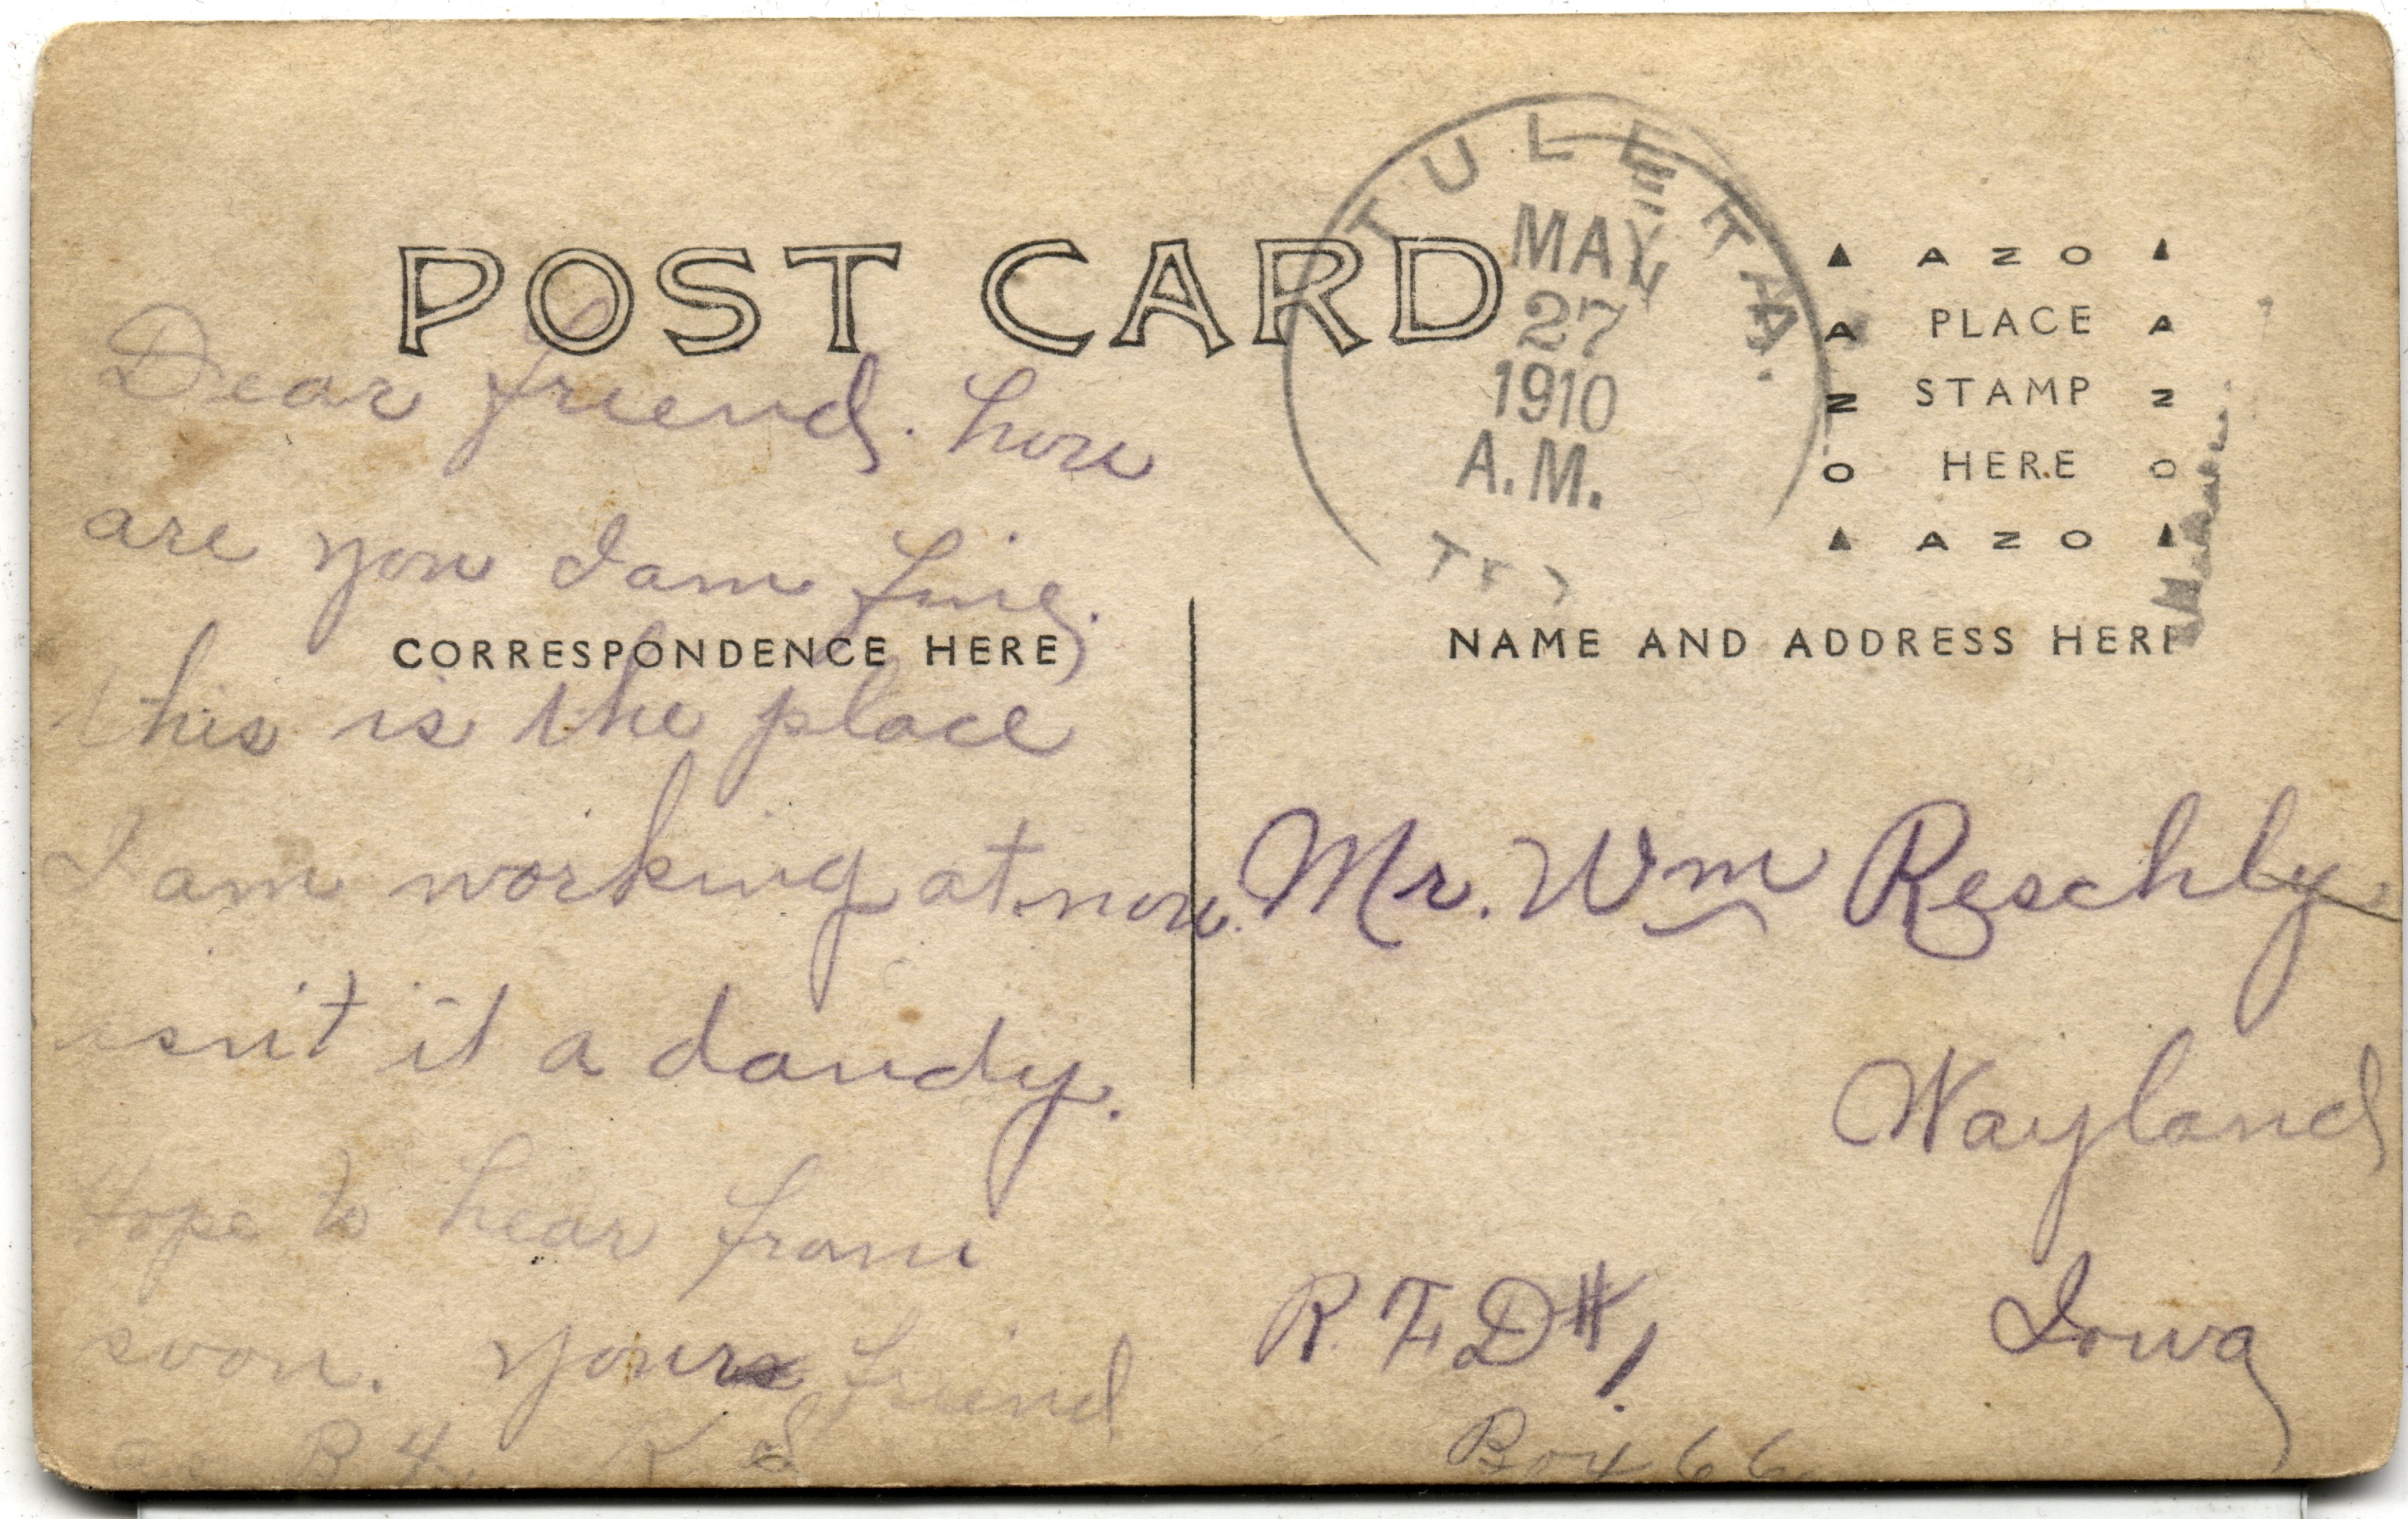 POST CARD
CORRESPONDENCE HERE
Dear friend. how
are you I am fine.
this is the place
I am working at now.
isn't it a dandy.
Hope to hear from
soon. yours friend
as B 4. K. S
TULETA.
MAY
27
1910
A.M.
TEX
AZO
PLACE
STAMP
HERE
AZO
AZO
AZO
NAME AND ADDRESS HERE
Mr. Wm Reschly
Wayland
Iowa
R. F. D #1.
Box 66